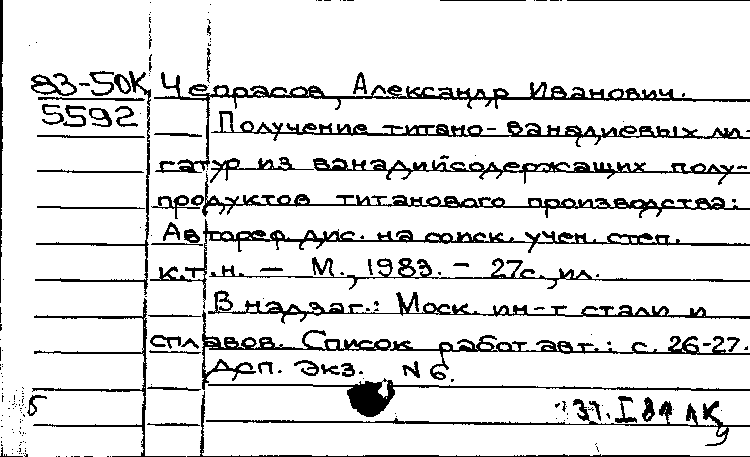 83-50К Чепрасов, Александр Иванович.
5592 Получение титано-ванадиевых ли-
гатур из ванадийсодержащих полу-
продуктов титанового производства:
Автореф. дис. на соиск. учен. степ.
к.т.н. — М., 1983. - 27с., ил.
В надзаг.: Моск. ин-т стали и
сплавов. Список работ авт.: с. 26-27.
Доп. экз. N 6.